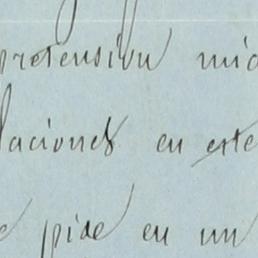 pretension mia
laciones en este
e pide en un